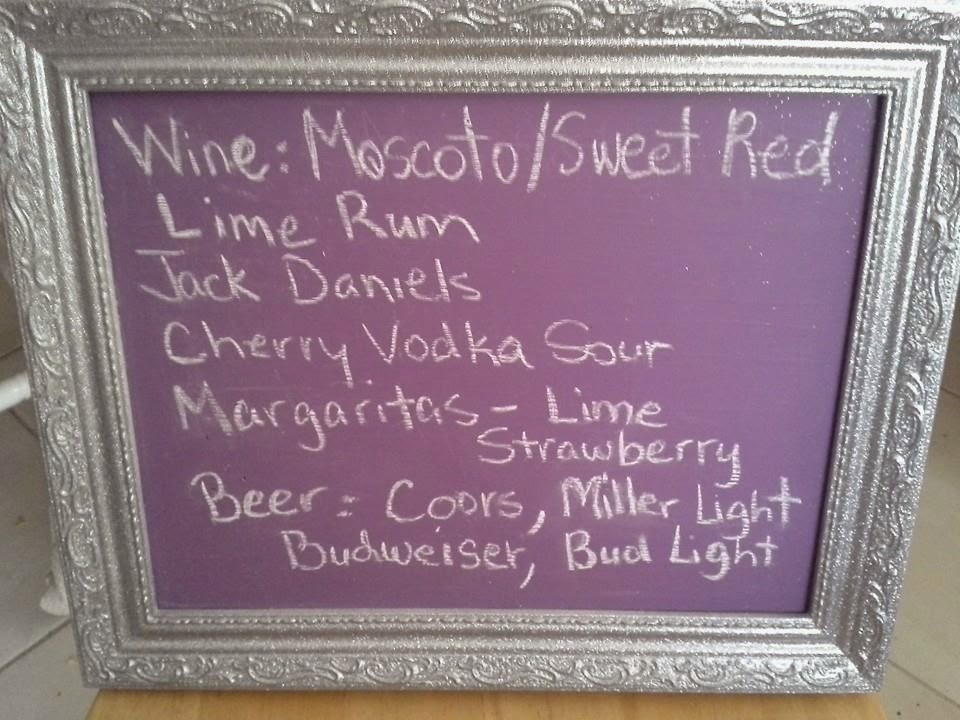 Wine: Moscoto/Sweet Red
Lime Rum
Jack Daniels
Cherry Vodka Sour
Margaritas - Lime
Strawberry
Beer: Coors, Miller Light
Budweiser, Bud Light